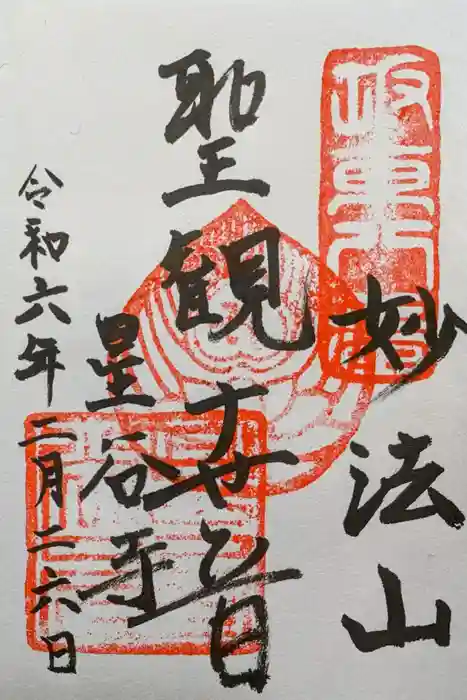 坂東八番
妙法山
聖観世音
星谷寺
令和六年二月二六日